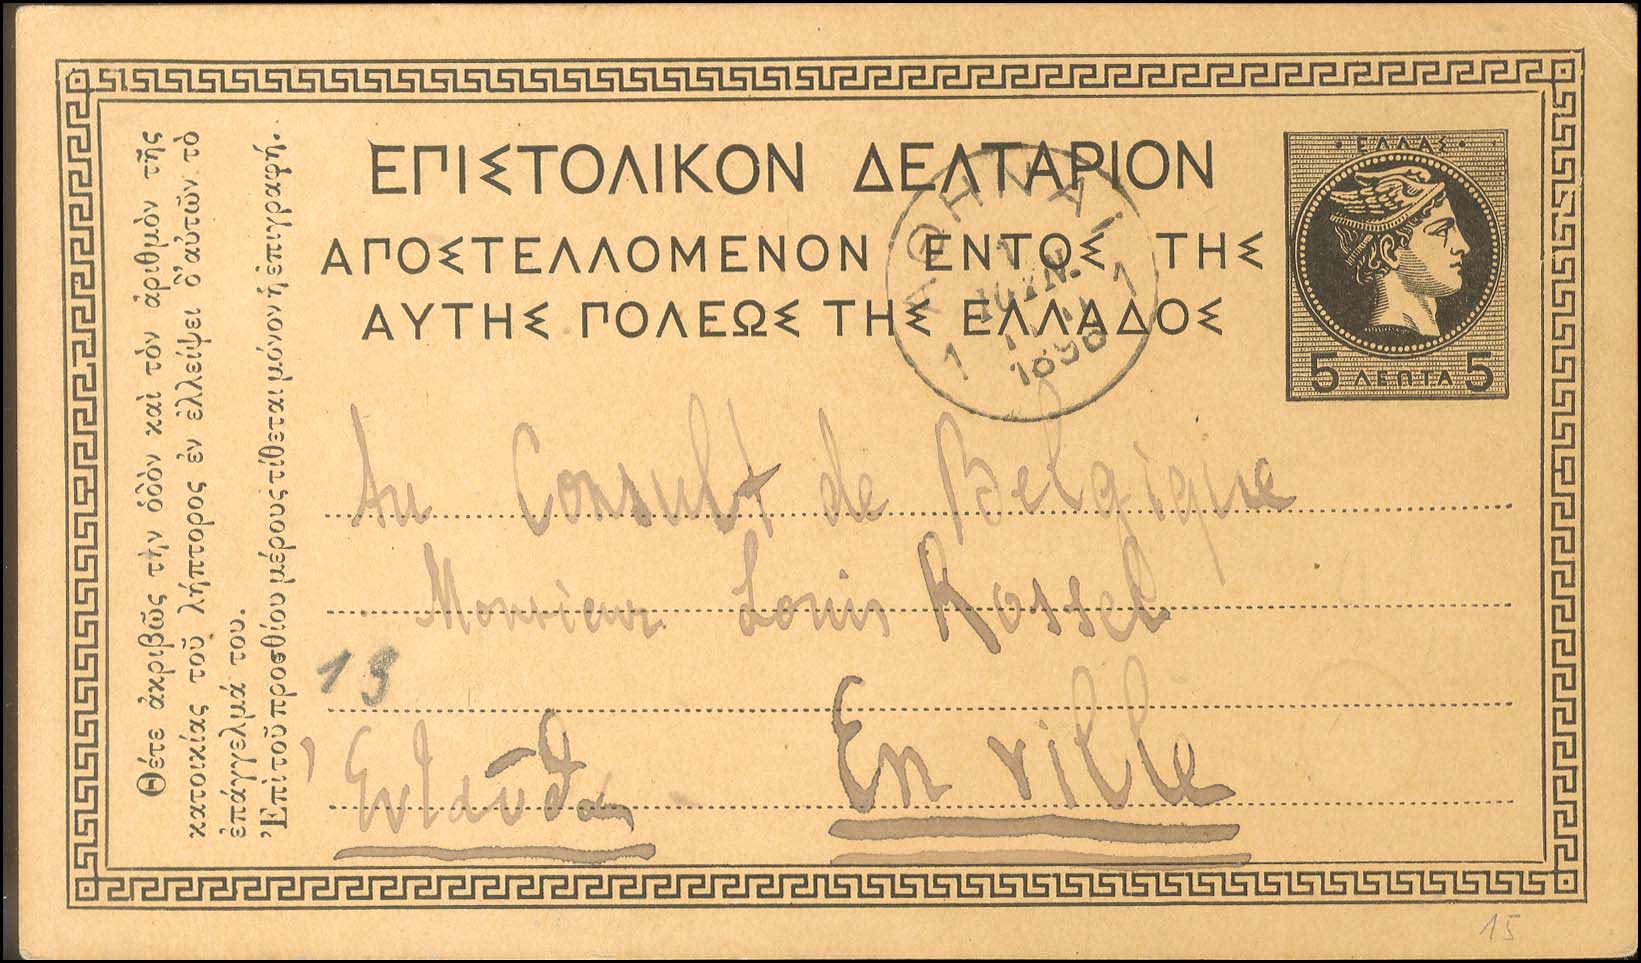 Θέτε ἀκριβῶς τὴν ὁδὸν καὶ τὸν ἀριθμὸν τῆς
κατοικίας τοῦ λήπτορος ἐν ἐλλείψει δ'αὐτῶν τὸ
ἐπάγγελμά του.
Ἐπὶ τοῦ προσθίου μέρους τίθεται μόνον ἡ ἐπιγραφή.
ΕΠΙΣΤΟΛΙΚΟΝ ΔΕΛΤΑΡΙΟΝ
ΑΠΟΣΤΕΛΛΟΜΕΝΟΝ ΕΝΤΟΣ ΤΗΣ
ΑΥΤΗΣ ΠΟΛΕΩΣ ΤΗΣ ΕΛΛΑΔΟΣ
ΕΛΛΑΣ
5 ΛΕΠΤΑ 5
ΑΘΗΝΑΙ
1 1
Au Consult de Belgique
Monsieur Louis Rossel
13
Ἐνταῦθα En ville
15